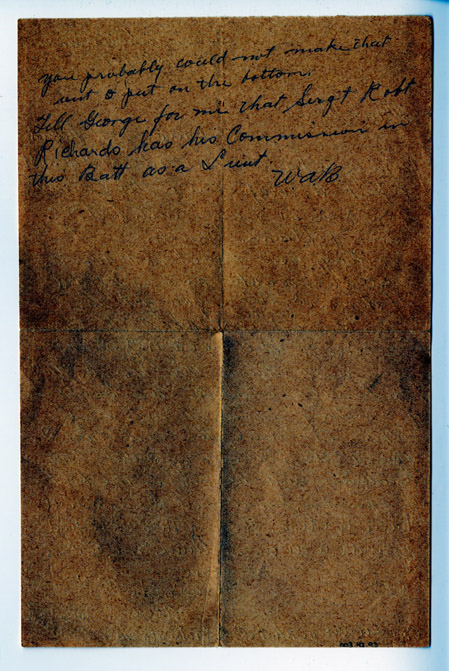 you probably could not make that
out I put on the bottom.
Tell George for me that Sergt Robt
Richards has his Commission in
this Batt as a Lieut.
WAB